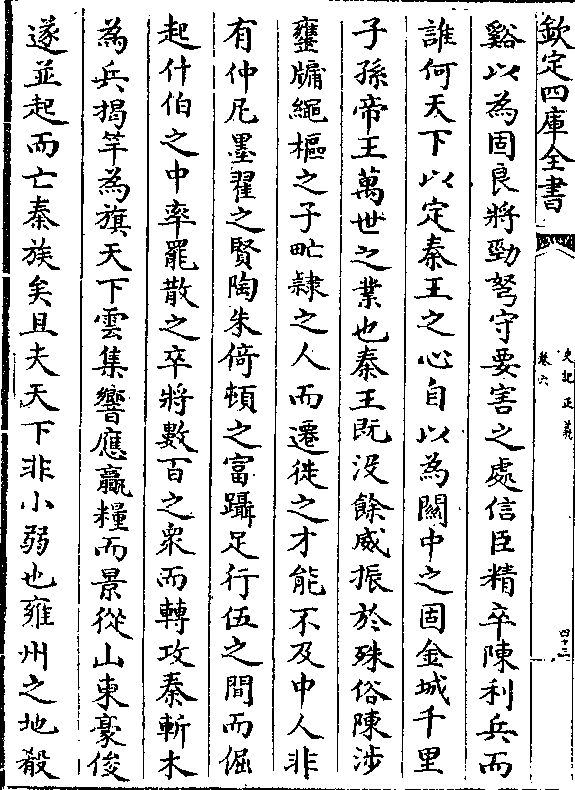 欽定四庫全書
史記正義
卷六
四十三
谿以為固良將勁弩守要害之處信臣精卒陳利兵而
誰何天下以定秦王之心自以為關中之固金城千里
子孫帝王萬世之業也秦王既没餘威振於殊俗陳涉
甕牖繩樞之子甿隸之人而遷徙之才能不及中人非
有仲尼墨翟之賢陶朱倚頓之富躡足行伍之間而倔
起什伯之中率罷散之卒將數百之衆而轉攻秦斬木
為兵揭竿為旗天下雲集響應贏糧而景從山東豪俊
遂並起而亡秦族矣且夫天下非小弱也雍州之地殽